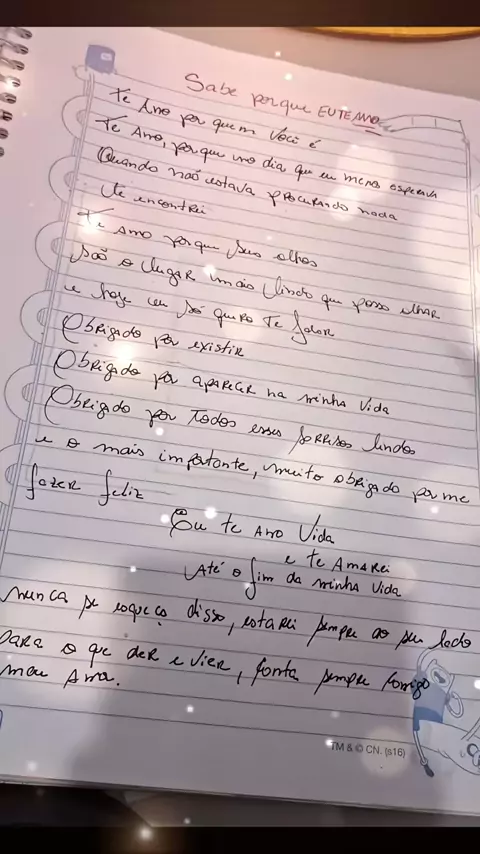 Sabe porque EU TE AMO
Te Amo por quem você é
Te Amo, porque no dia que eu menos esperava
Quando não estava procurando nada
te encontrei
Te Amo porque seus olhos
são o lugar mais lindo que posso olhar
e hoje eu só quero te falar
Obrigado por existir
Obrigado por aparecer na minha vida
Obrigado por todos esses sorrisos lindos
e o mais importante, muito obrigado por me
fazer feliz
Eu te amo Vida
e te Amarei
Até o fim da minha vida
nunca se esqueça disso, estarei sempre ao seu lado
para o que der e vier, conta sempre comigo
meu Amor.
TM & © CN. (s16)